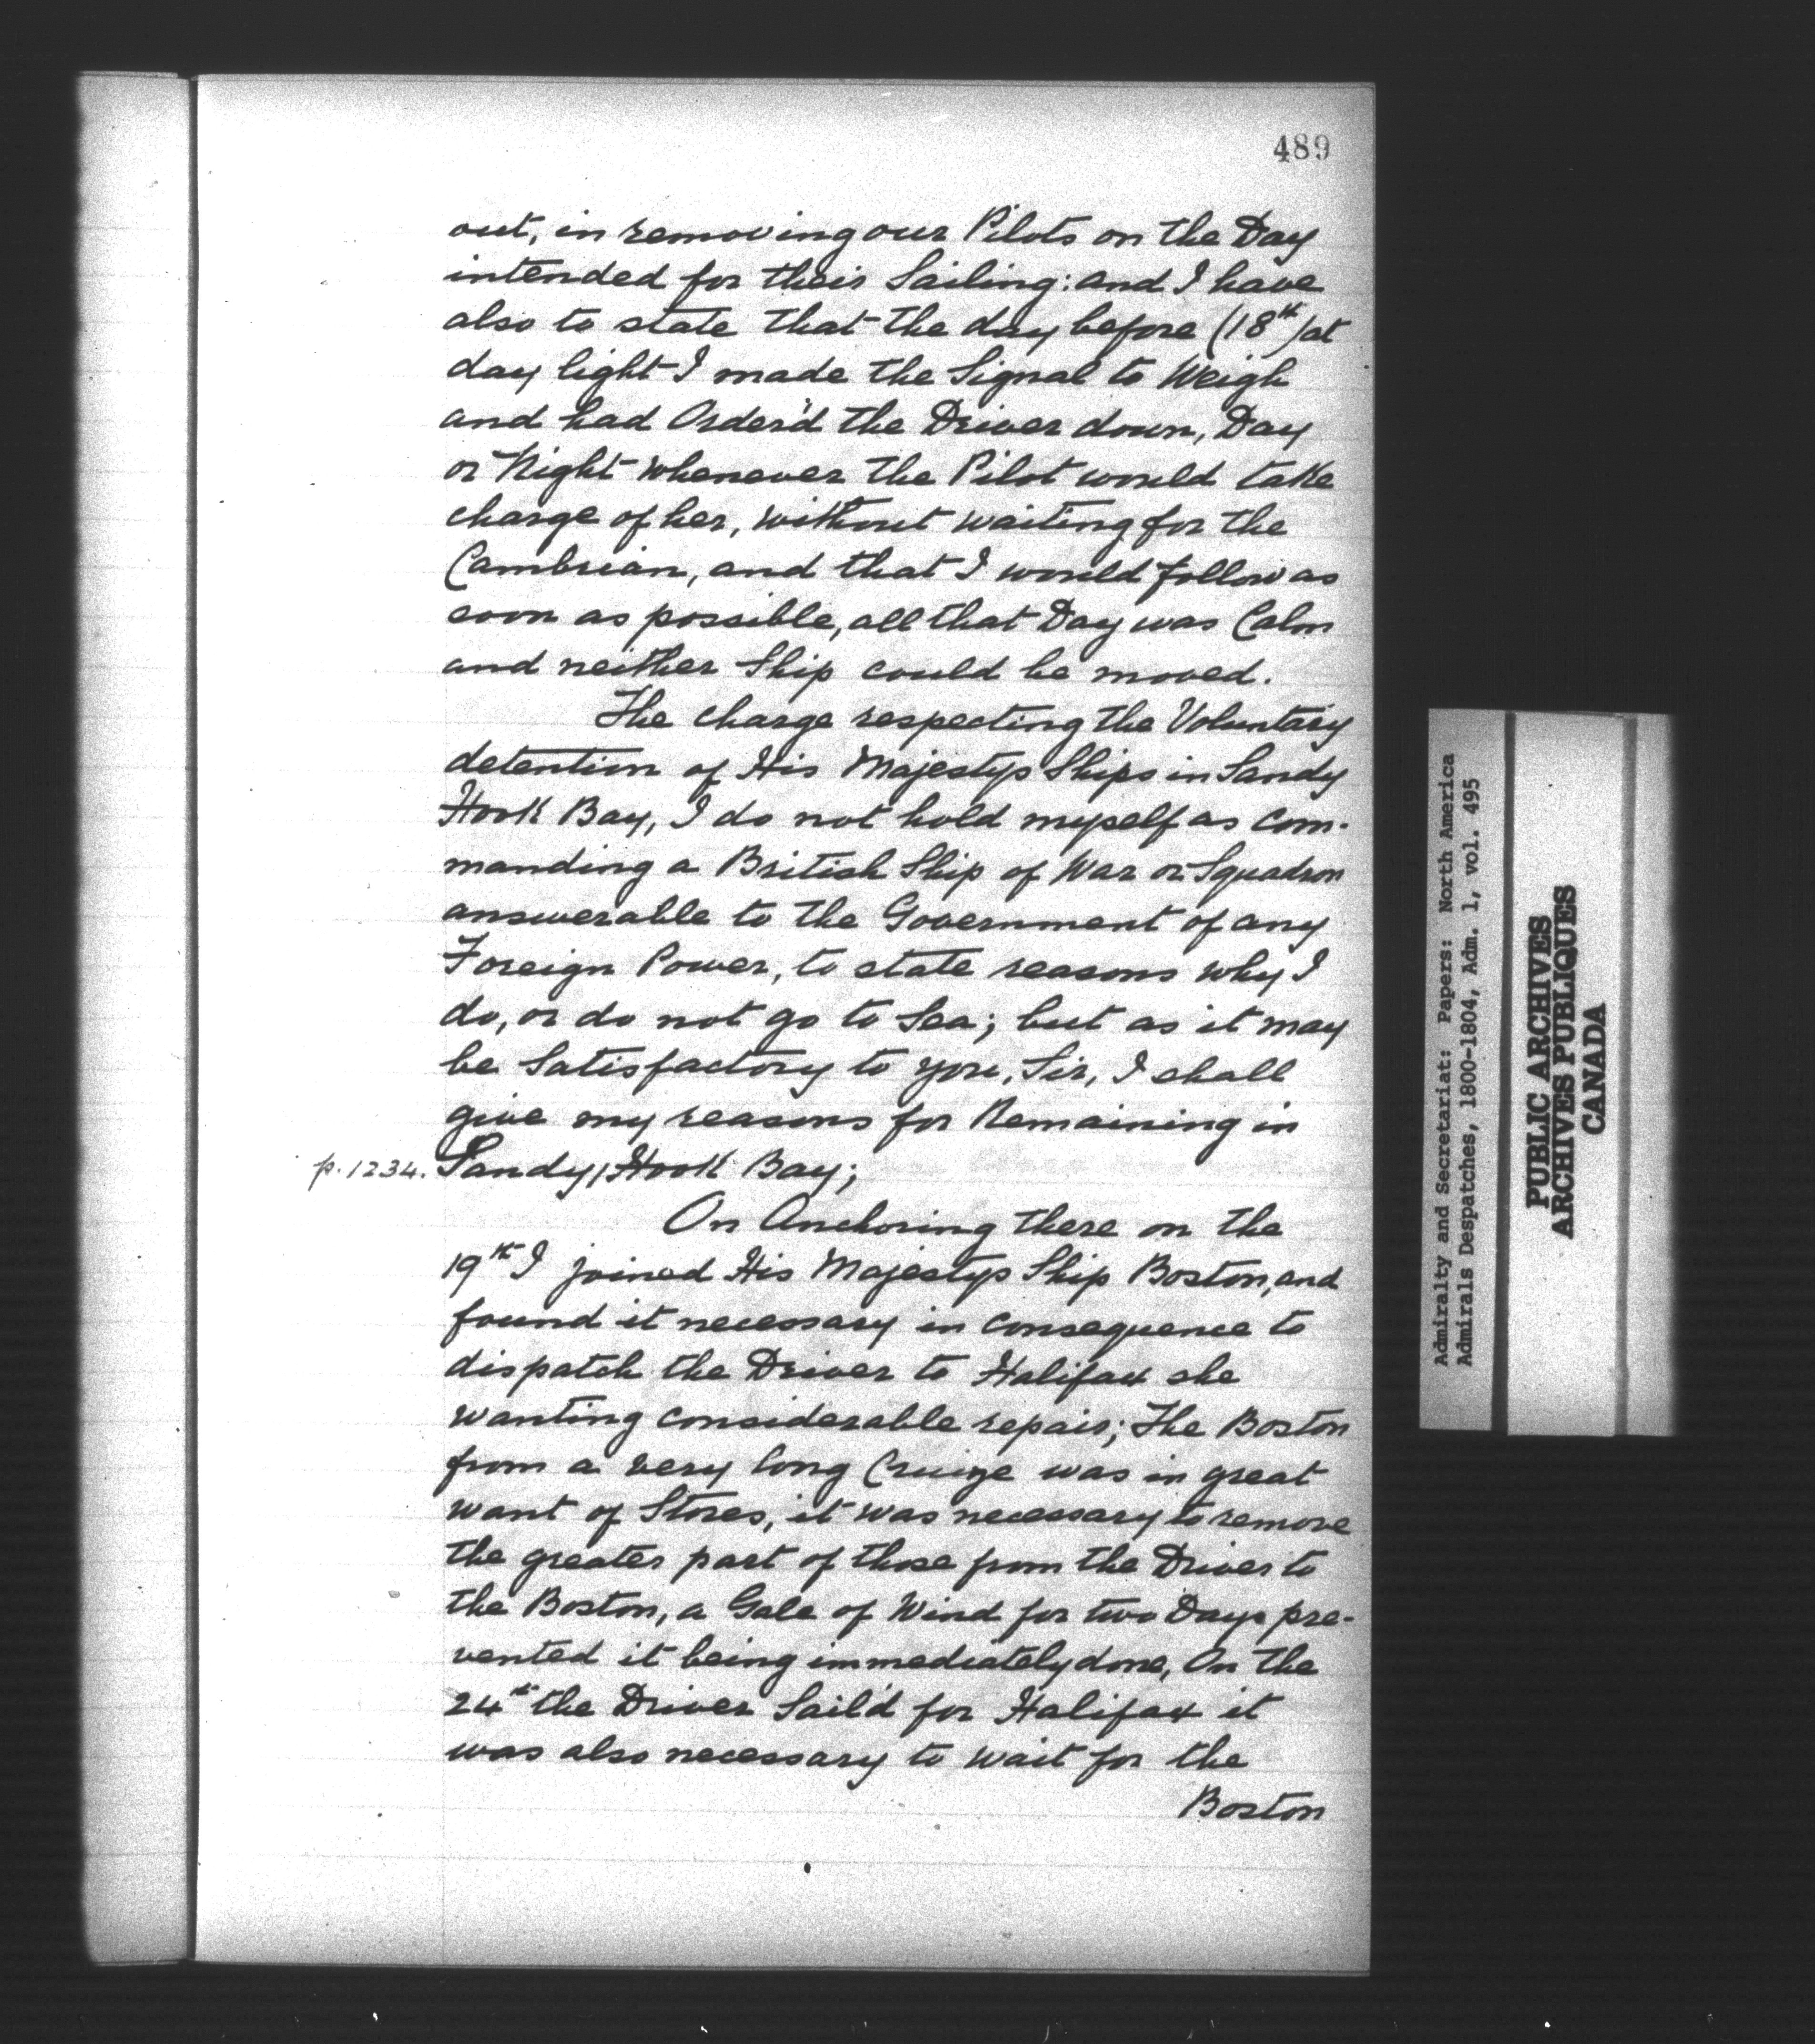 489
out, in removing our Pilots on the Day
intended for their Sailing: and I have
also to state that the day before (18th) at
day light I made the Signal to Weigh
and had Order'd the Driver down, Day
or Night whenever the Pilot would take
charge of her, without waiting for the
Cambrian, and that I would follow as
soon as possible, all that Day was Calm
and neither Ship could be moved.
The charge respecting the Voluntary
detention of His Majestys Ships in Sandy
Hook Bay, I do not hold myself as com-
manding a British Ship of War or Squadron
answerable to the Government of any
Foreign Power, to state reasons why I
do, or do not go to Sea; but as it may
be Satisfactory to you, Sir, I shall
give my reasons for Remaining in
p. 1234. Sandy/Hook Bay;
On Anchoring there on the
19th I joined His Majestys Ship Boston, and
found it necessary in consequence to
dispatch the Driver to Halifax she
wanting considerable repair; The Boston
from a very long Cruize was in great
want of Stores, it was necessary to remove
the greater part of those from the Driver to
the Boston, a Gale of Wind for two Days pre-
vented it being immediately done, On the
24th the Driver Sail'd for Halifax it
was also necessary to wait for the
Boston
Admiralty and Secretariat: Papers: North America
Admirals Despatches, 1800-1804, Adm. 1, vol. 495
PUBLIC ARCHIVES
ARCHIVES PUBLIQUES
CANADA